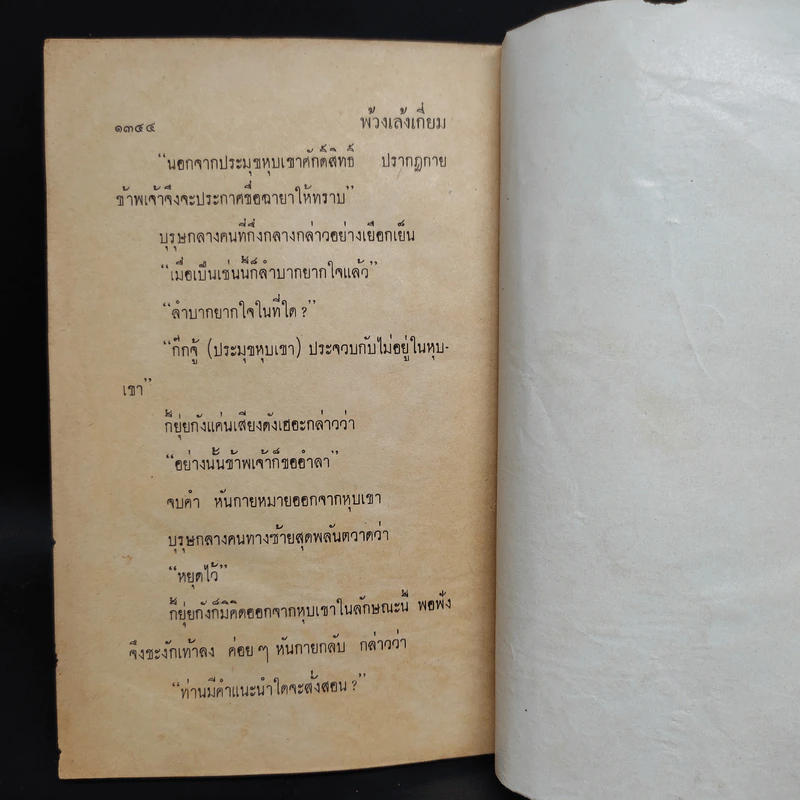 ๑๓๕๔ พ้วงเล้งเกี่ยม
“นอกจากประมุขหุบเขาศักดิ์สิทธิ์ ปรากฏกาย
ข้าพเจ้าจึงจะประกาศชื่อฉายาให้ทราบ”
บุรุษกลางคนที่กึ่งกลางกล่าวอย่างเยือกเย็น
“เมื่อเป็นเช่นนี้ก็ลำบากยากใจแล้ว”
“ลำบากยากใจในที่ใด ?”
“ก๊กจู้ (ประมุขหุบเขา) ประจวบกับไม่อยู่ในหุบ-
เขา”
ก้ยุ่ยกังแค่นเสียงดังเฮอะกล่าวว่า
“อย่างนั้นข้าพเจ้าก็ขออำลา”
จบคำ หันกายหมายออกจากหุบเขา
บุรุษกลางคนทางซ้ายสุดพลันตวาดว่า
“หยุดไว้”
ก้ยุ่ยกังก็มิคิดออกจากหุบเขาในลักษณะนี้ พอฟัง
จึงชะงักเท้าลง ค่อย ๆ หันกายกลับ กล่าวว่า
“ท่านมีคำแนะนำใดจะสั่งสอน ?”